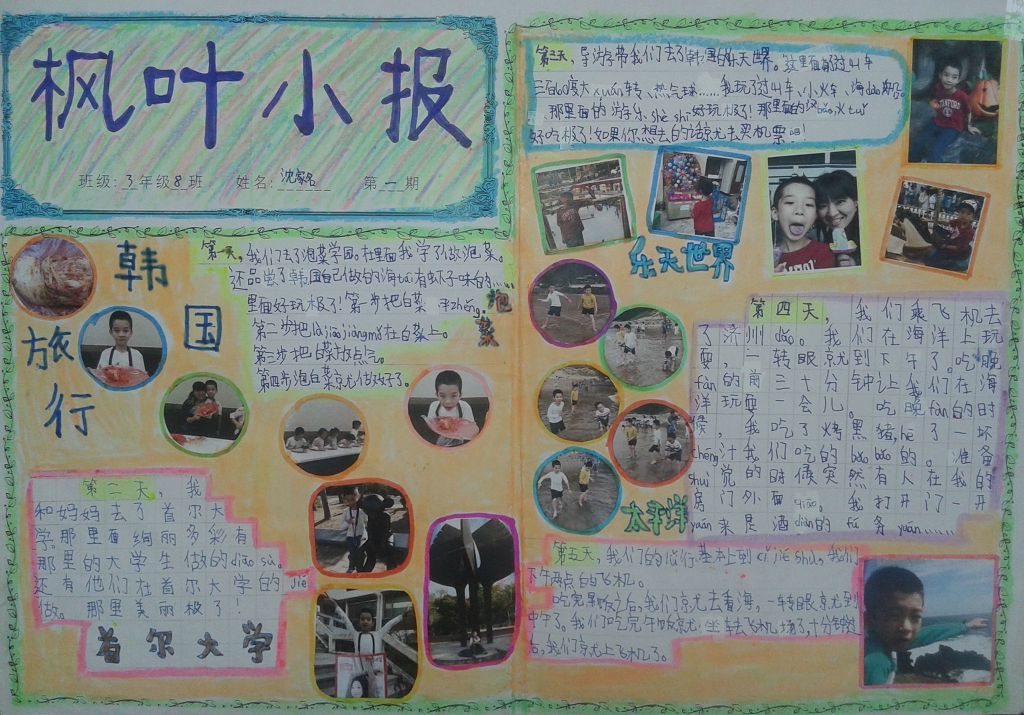 枫叶小报
班级：3年级8班 姓名：沈家名 第一期
韩国
旅行
第一天，我们去了泡菜学园。在里面我学了做泡菜。
还品尝了韩国自己做的海tái有虾子味的……
里面好玩极了！第一步把白菜 平zhěng。
第二步把làjiāojiàngmǒ在白菜上。
第三步把白菜放点气。
第四步泡白菜京尤做好了。
泡菜
第二天，我
和妈妈去了首尔大
学。那里面绚丽多彩有
那里的大学生做的diāo sù。
还有他们在首尔大学的jiē
做。那里美丽极了！
首尔大学
第三天，导游带我们去了韩国的乐天世界。这里面有过山车
三百六十度大xuán转、热气球……我玩了过山车、小火车、海dào船。
那里面的游乐shè shī好玩极了！那里面的汉bǎo、火tuǐ
好吃极了！如果你想去的话京尤去买机票吧！
乐天世界
第四天，我们乘飞机去
了济州dǎo。我们在海洋上玩
耍，一转眼京尤到下午了。吃晚
fàn的前三十分钟让我们在海
洋玩耍一会儿。吃晚fàn的时
候，我吃了烤黑猪，hē了一坏
chéng汁我们吃的bǎo bǎo的。准备
shuì觉的时候突然有人在我的
房门外面qiāo。我打开门一开
yuán来是酒diàn的fú务yuán……
太平洋
第五天，我们的旅行基本上到cǐ jié shù，我们
下午两点的飞机。
吃完早饭之后，我们京尤去看海，一转眼京尤到
中午了。我们吃完午饭京尤坐车去飞机场了，十分钟过
后，我们京尤上飞机了。